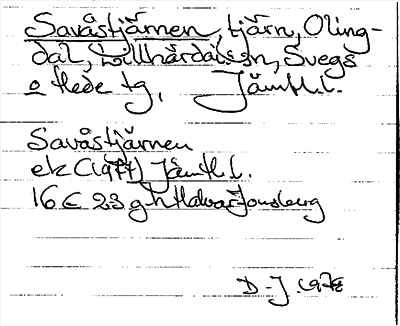 Savåstjärnen, tjärn, Oling-
dal, Lillhärdals sn, Svegs
o Hede tg, Jämtl.l.
Savåstjärnen
ek (1977) Jämtl.l.
16 E 2-3 g-h Halvar Jonsberg
D-J. 1978